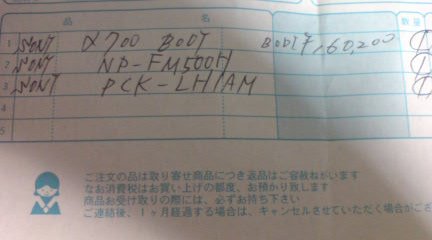 品 名 数量
1 SONY α700 BODY BODY ¥,60,200 1
2 SONY NP-FM500H 1
3 SONY PCK-LH1AM 1
4
5
ご注文の品は取り寄せ商品につき返品はご容赦ねがいます
なお消費税はお買い上げの都度、お預かり致します
商品お受け取りの際には、必ずお持ち下さい
ご連絡後、1ヶ月経過する場合は、キャンセルさせていただく場合がご